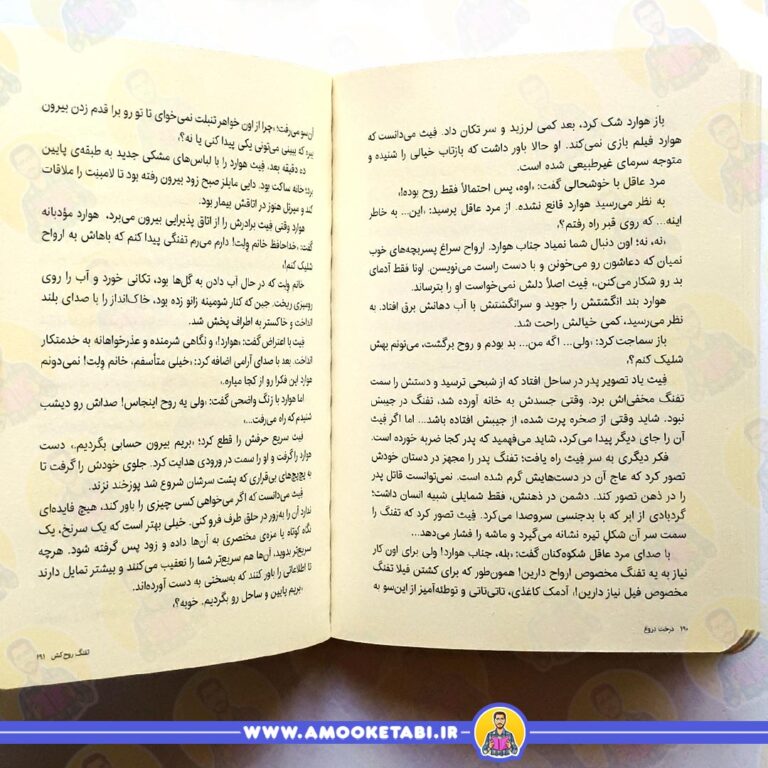 باز هوارد شک کرد، بعد کمی لرزید و سر تکان داد. فِیث می‌دانست که
هوارد فیلم بازی نمی‌کند. او حالا باور داشت که بازتاب خیالی را شنیده و
متوجه سرمای غیرطبیعی شده است.
مرد عاقل با خوشحالی گفت: «اوه، پس احتمالاً فقط روح بوده!»
به نظر می‌رسید هوارد قانع نشده. از مرد عاقل پرسید: «این... به خاطر
اینه... که روی قبر راه رفتم؟»
«نه، نه؛ اون دنبال شما نمیاد جناب هوارد. ارواح سراغ پسربچه‌های خوب
نمیان که دعاشون رو می‌خونن و با دست راست می‌نویسن. اونا فقط آدمای
بد رو شکار می‌کنن.» فِیث اصلاً دلش نمی‌خواست او را بترساند.
هوارد بند انگشتش را جوید و سرانگشتش با آب دهانش برق افتاد. به
نظر می‌رسید، کمی خیالش راحت شد.
باز سماجت کرد: «ولی... اگه من... بد بودم و روح برگشت، می‌تونم بهش
شلیک کنم؟»
فِیث یاد تصویر پدر در ساحل افتاد که از شبحی ترسید و دستش را سمت
تفنگ مخفی‌اش برد. وقتی جسدش به خانه آورده شد، تفنگ در جیبش
نبود. شاید وقتی از صخره پرت شده، از جیبش افتاده باشد... اما اگر فِیث
آن را جای دیگر پیدا می‌کرد، شاید می‌فهمید که پدر کجا ضربه خورده است.
فکر دیگری به سر فِیث راه یافت؛ تفنگ پدر را مجهز در دستان خودش
تصور کرد که عاج آن در دست‌هایش گرم شده است. نمی‌توانست قاتل پدر
را در ذهن تصور کند. دشمن در ذهنش، فقط شمایلی شبیه انسان داشت؛
گردبادی از ابر که با بدجنسی سروصدا می‌کرد. فِیث تصور کرد که تفنگ را
سمت سر آن شکلِ تیره نشانه می‌گیرد و ماشه را فشار می‌دهد...
با صدای مرد عاقل شکوه‌کنان گفت: «بله، جناب هوارد! ولی برای اون کار
نیاز به یه تفنگ مخصوص ارواح دارین! همون‌طور که برای کشتن فیلا تفنگ
مخصوص فیل نیاز دارین!» آدمک کاغذی، تاتی‌تاتی و توطئه‌آمیز از این‌سو به
۲۹۰ درخت دروغ
آن‌سو می‌رفت؛ «چرا از اون خواهر تنبلت نمی‌خوای تا تو رو برا قدم زدن بیرون
ببره که ببینی می‌تونی یکی پیدا کنی یا نه؟»
ده دقیقه بعد، فِیث هوارد را با لباس‌های مشکی جدید به طبقه‌ی پایین
برد؛ خانه ساکت بود. دایی مایلز صبح زود بیرون رفته بود تا لامبِنت را ملاقات
کند و میرتل هنوز در اتاقش بیمار بود.
هوارد وقتی فِیث برادرش را از اتاق پذیرایی بیرون می‌برد، هوارد مؤدبانه
گفت: «خداحافظ خانم وِلِت! دارم می‌رم تفنگی پیدا کنم که باهاش به ارواح
شلیک کنم!»
خانم وِلِت که در حال آب دادن به گل‌ها بود، تکانی خورد و آب را روی
رومیزی ریخت. جین که کنار شومینه زانو زده بود، خاک‌انداز را با صدای بلند
انداخت و خاکستر به اطراف پخش شد.
فِیث با اعتراض گفت: «هوارد!» و نگاهی شرمنده و عذرخواهانه به خدمتکار
انداخت. بعد با صدای آرامی اضافه کرد: «خیلی متأسفم، خانم وِلِت! نمی‌دونم
هوارد این فکرا رو از کجا میاره.»
اما هوارد با زنگ واضحی گفت: «ولی یه روح اینجاس! صداش رو دیشب
شنیدم که راه می‌رفت...»
فِیث سریع حرفش را قطع کرد؛ «بریم بیرون حسابی بگردیم.» دست
هوارد را گرفت و او را سمت در ورودی هدایت کرد. جلوی خودش را گرفت تا
به پچ‌پچ‌های بی‌قراری که پشت سرشان شروع شد پوزخند نزند.
فِیث می‌دانست که اگر می‌خواهی کسی چیزی را باور کند، هیچ فایده‌ای
ندارد آن را به‌زور در حلق طرف فرو کنی. خیلی بهتر است که یک سرنخ، یک
نگاه کوتاه یا مزه‌ی مختصری به آن‌ها داده و زود پس گرفته شود. هرچه
سریع‌تر بدوید، آن‌ها هم سریع‌تر شما را تعقیب می‌کنند و بیشتر تمایل دارند
تا اطلاعاتی را باور کنند که به‌سختی به دست آورده‌اند.
«بریم پایین و ساحل رو بگردیم. خوبه؟»
تفنگ روح‌کش ۲۹۱
WWW.AMOOKETABI.IR